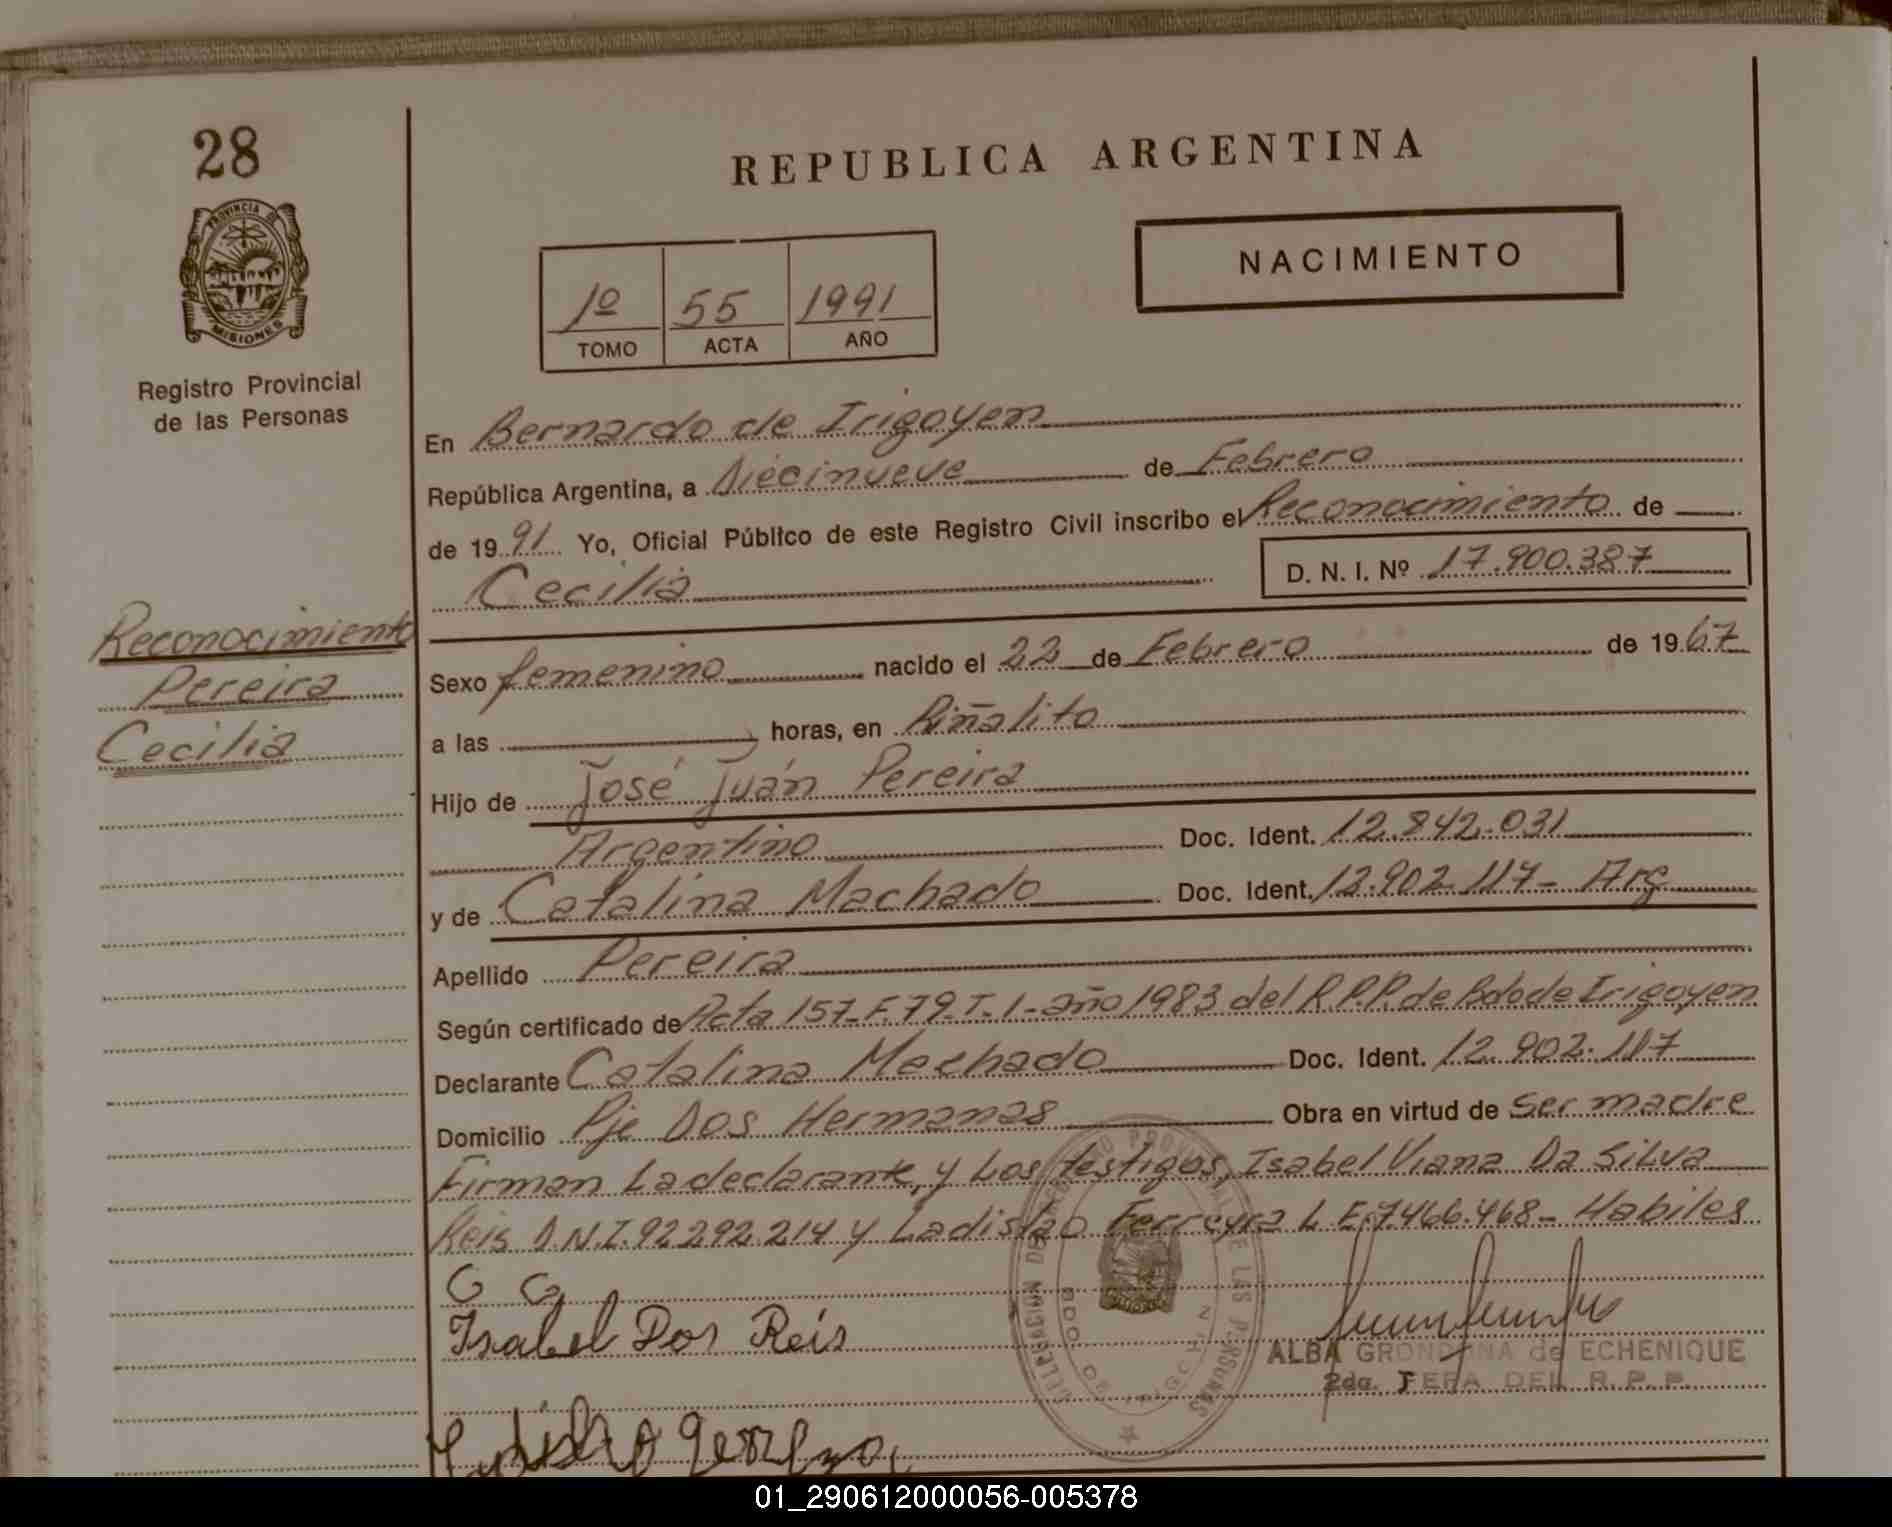 28
PROVINCIA DE
MISIONES
Registro Provincial
de las Personas
REPUBLICA ARGENTINA
NACIMIENTO
1º 55 1991
TOMO ACTA AÑO
En Bernardo de Irigoyen
República Argentina, a Diecinueve de Febrero
de 1991 Yo, Oficial Público de este Registro Civil inscribo el Reconocimiento de
Cecilia D. N. I. Nº 17.900.387
Reconocimiento
Pereira
Cecilia
Sexo femenino nacido el 22 de Febrero de 1967
a las horas, en Piñalito
Hijo de José Juán Pereira
Argentino Doc. Ident. 12.842.031
y de Catalina Machado Doc. Ident. 12.902.117- Arg
Apellido Pereira
Según certificado de Acta 157-F.79-T-1-año 1983 del R.P.P. de Bdo de Irigoyen
Declarante Catalina Machado Doc. Ident. 12.902.117
Domicilio Pje Dos Hermanas Obra en virtud de ser madre
Firman La declarante, y Los testigos, Isabel Viana Da Silva
Reis D.N.I.92292.214 y Ladislao Ferreyra L.E.7466.468- Habiles
C C
Isabel Dos Reis
ALBA GRONDONA de ECHENIQUE
2da. JEFA DEL R. P. P.
01_290612000056-005378